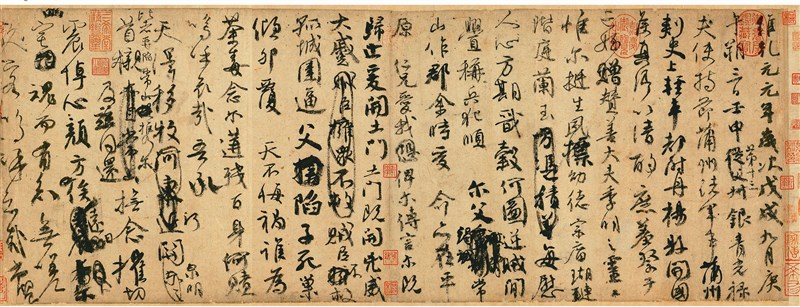 維乾元元年歲次戊戌九月庚
午朔三日壬申第十三叔銀青光祿
夫使持節蒲州諸軍事蒲州
刺史上輕車都尉丹楊縣開國
侯真卿以清酌庶羞祭于
亡姪贈贊善大夫季明之靈曰
惟爾挺生夙標幼德宗廟瑚璉
階庭蘭玉每慰
人心方期戩穀何圖逆賊閒
釁稱兵犯順爾父竭誠常
山作郡余時受命亦在平
原仁兄愛我俾爾傳言爾既
歸止爰開土門土門既開凶威
大蹙賊臣擁眾不救賊臣不救
孤城圍逼父陷子死巢
傾卵覆天不悔禍誰為
荼毒念爾遘殘百身何贖
嗚呼哀哉吾承
天澤移牧河關泉明
比者再陷常山攜爾
首櫬及茲同還
撫念摧切
震悼心顏方俟遠日
宅魂而有知無嗟
久客嗚呼哀哉尚饗